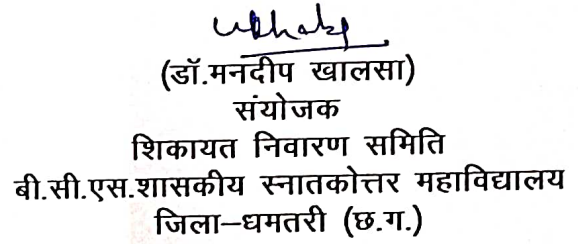 (डॉ.मनदीप खालसा)
संयोजक
शिकायत निवारण समिति
बी.सी.एस.शासकीय स्नातकोत्तर महाविद्यालय
जिला–धमतरी (छ.ग.)